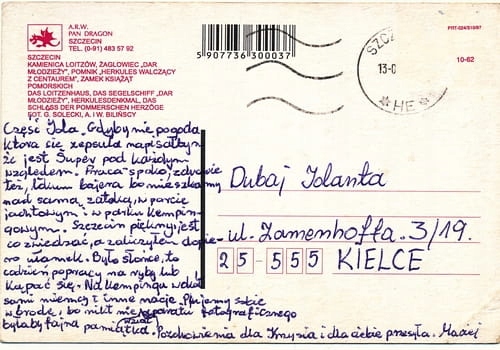 A.R.W.
PAN DRAGON
SZCZECIN
TEL. (0-91) 483 57 92
SZCZECIN
KAMIENICA LOITZÓW, ŻAGLOWIEC „DAR
MŁODZIEŻY", POMNIK „HERKULES WALCZĄCY
Z CENTAUREM", ZAMEK KSIĄŻĄT
POMORSKICH
DAS LOITZENHAUS, DAS SEGELSCHIFF „DAR
MŁODZIEŻY", HERKULESDENKMAL, DAS
SCHLOSS DER POMMERSCHEN HERZÖGE
FOT. G. SOLECKI, A. I W. BILIŃSCY
5 907736 300037
SZCZ
13-0
HE
10-62
Cześć Jola. Gdyby nie pogoda
która się zepsuła napisałbym
że jest Super pod każdym
względem. Praca spoko, zdrowie
też, lokum bajera bo mieszkamy
nad samą zatoką, w porcie
jachtowym i w parku Kempin-
gowym. Szczecin piękny, jest
co zwiedzać, a zaliczyłem dopie-
ro ułamek. Było słońce, to
codzień po pracy na ryby lub
kąpać się. Na Kempingu wokół
sami niemcy i inne nacje. Plujemy sobie
w brodę, bo nikt nie wziął aparatu fotograficznego
byłaby fajna pamiątka. Pozdrowienia dla Krysia i dla ciebie przesyła. Maciej
Dubaj Jolanta
ul. Zamenhoffa 3/19.
25-555 KIELCE